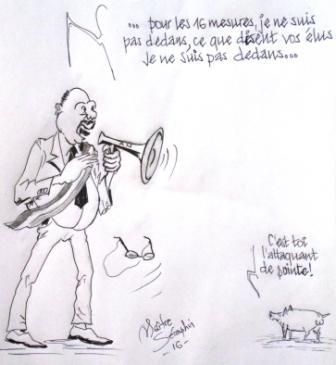 ... pour les 16 mesures, je ne suis
pas dedans, ce que disent vos élus
Je ne suis pas dedans...
C'est toi
l'attaquant
de pointe!
Maître
Séraphin
-16-